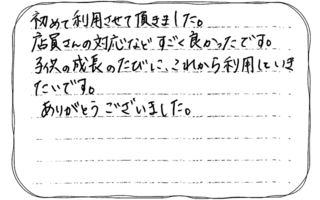 初めて利用させて頂きました。
店員さんの対応などすごく良かったです。
子供の成長のたびに、これから利用していき
たいです。
ありがとうございました。